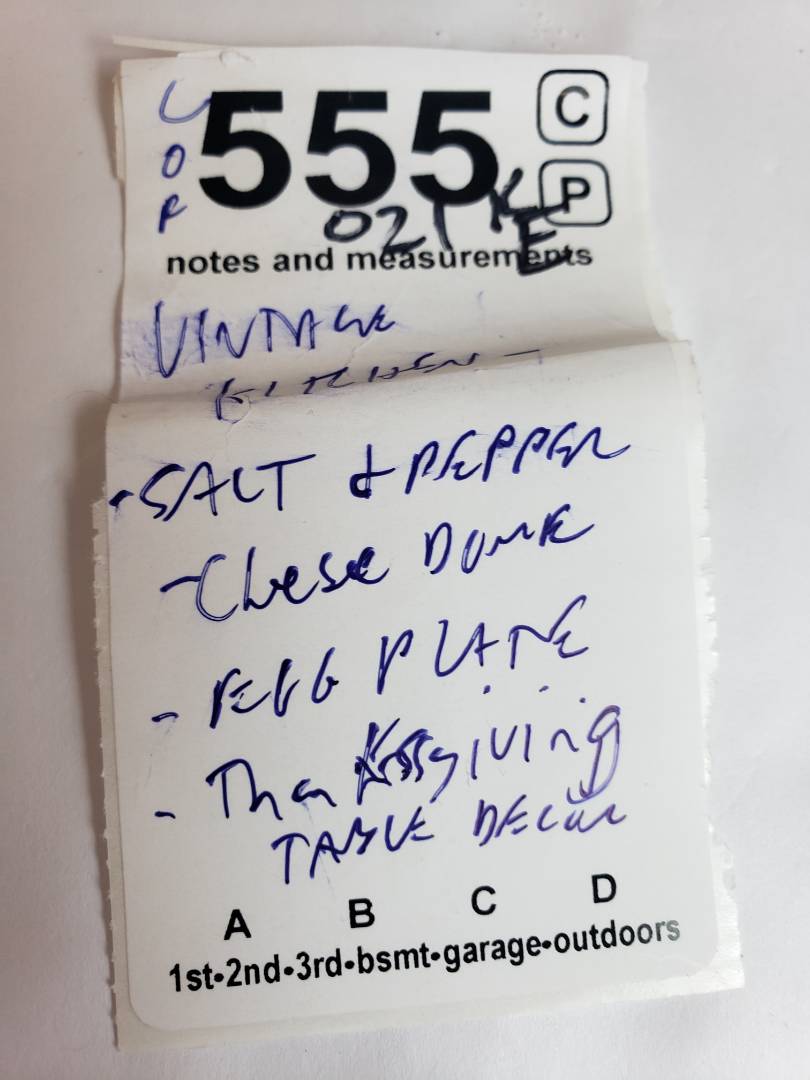 LOR
555
C
P
021 KE
notes and measurements
VINTAGE
KITCHEN -
- SALT & PEPPER
- Chese DOME
- EGG PLATE
- Thanksgiving
TABLE DECOR
A B C D
1st•2nd•3rd•bsmt•garage•outdoors